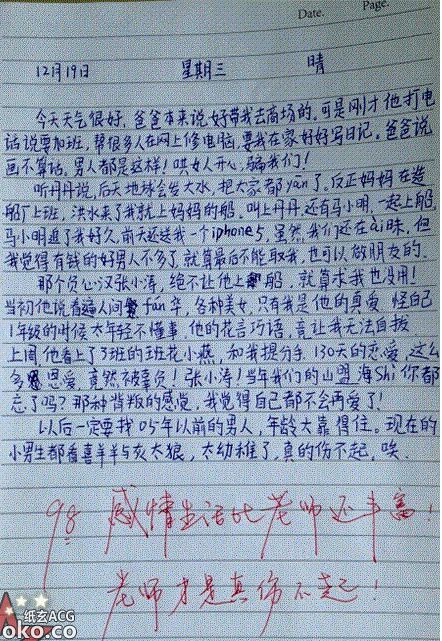 Date. Page.
12月19日 星期三 晴
今天天气很好,爸爸本来说好带我去商场的,可是刚才他打电
话说要加班,帮很多人在网上修电脑,要我在家好好写日记。爸爸说
画不算话,男人都是这样!哄人开心,骗我们!
听丹丹说,后天地球会发大水,把大家都yān了,反正妈妈在造
船厂上班,洪水来了我就上妈妈的船,叫上丹丹,还有马小明,一起上船,
马小明追了我好久,前天还送我一个iphone5,虽然我们还在ài昧,但
我觉得有钱的好男人不多了,就算最后不能取我,也可以做朋友的。
那个负心汉张小涛,绝不让他上船,就算求我也没用!
当初他说看遍人间fán华,各种美女,只有我是他的真爱,怪自己
1年级的时候太年轻不懂事,他的花言巧语,竟让我无法自拔
上周他看上了3班的班花小燕,和我提分手,130天的恋爱,这么
多恩爱,竟然被辜负!张小涛!当年我们的山盟海Shi你都
忘了吗?那种背叛的感觉,我觉得自己都不会再爱了!
以后一定要找05年以前的男人,年龄大靠得住。现在的
小男生都看喜羊羊与灰太狼,太幼稚了,真的伤不起,唉.
98 感情生活比老师还丰富!
老师才是真伤不起!
纸玄ACG
oko.co